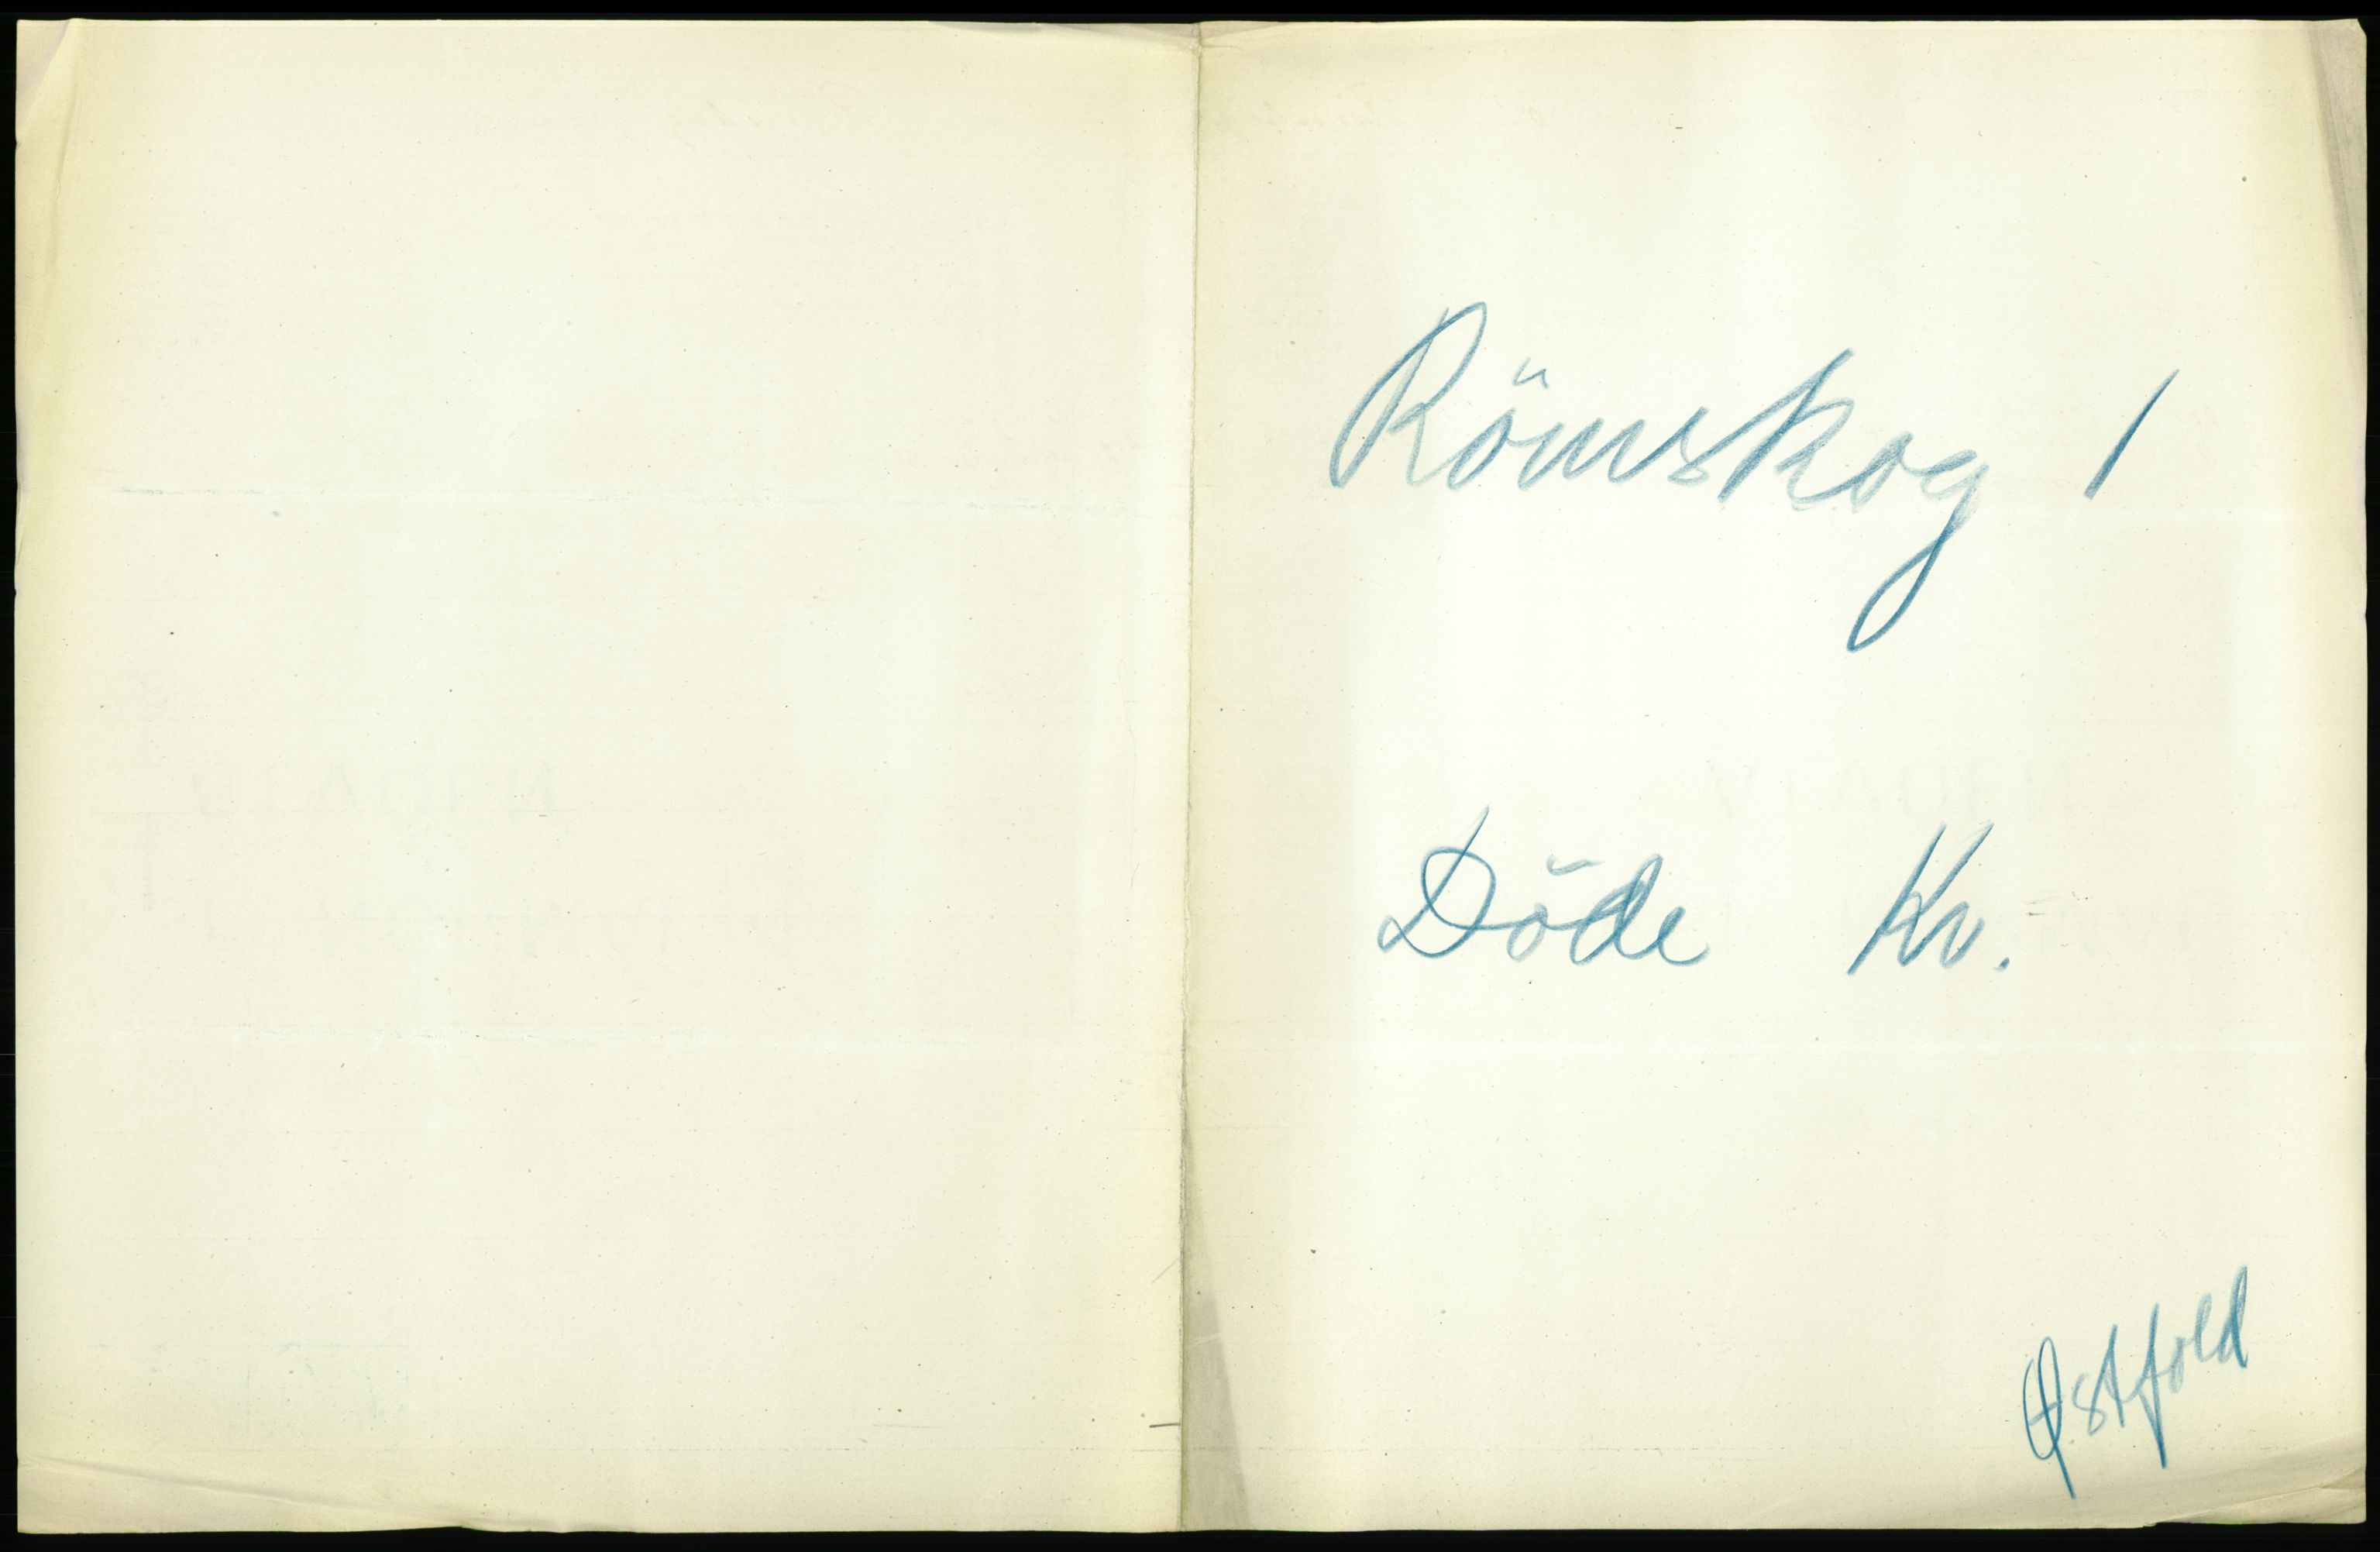 Römskog 1
Döde Kv.
Østfold